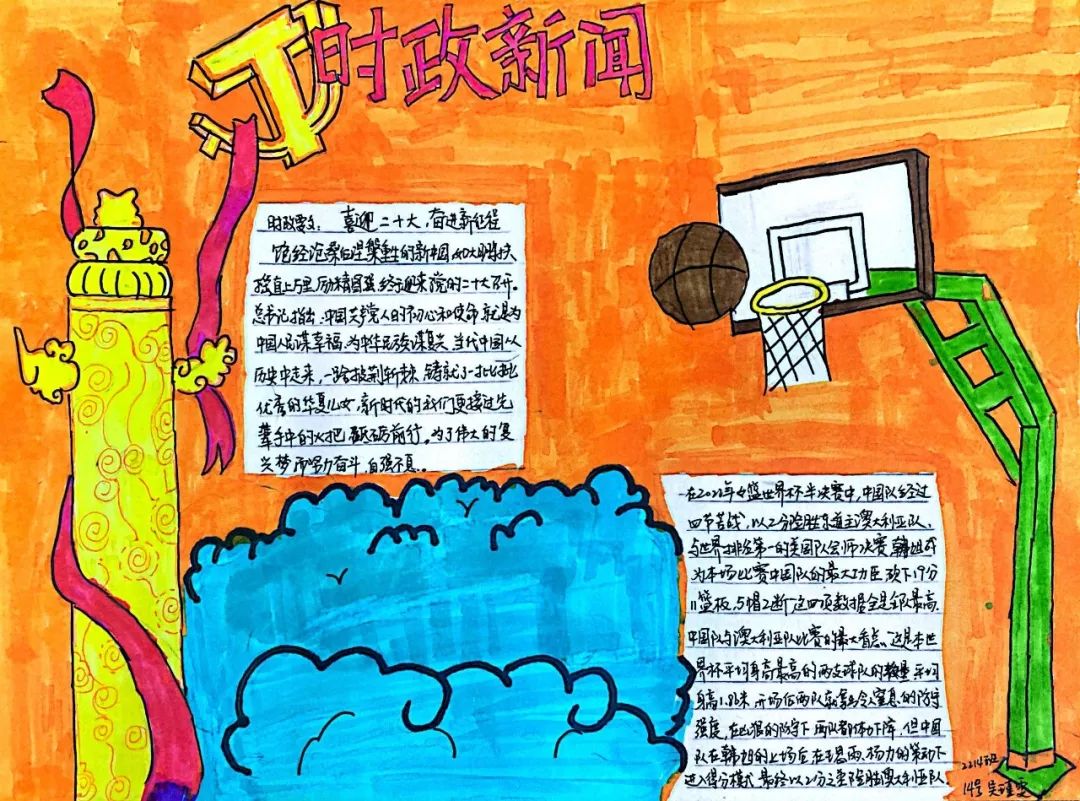 时政新闻
时政要文：喜迎二十大，奋进新征程
饱经沧桑白涅槃重生的新中国，如大鹏
接直上与里，历精图亟，终于迎来党的二十大召开。
总书记指出，中国共党人的初心和使命，就是为
中国人民谋幸福，为中华民族谋复兴，当代中国从
历史中走来，一路披荆斩棘，铸就了一批批
优秀的华夏儿女，新时代的我们更接过先
辈手中的火把，砥砺前行，为了伟大的复
兴梦而努力奋斗，自强不息。
在2022年女篮世界杯半决赛中，中国队经过
四节苦战，以2分险胜东道主澳大利亚队，
与世界排名第一的美国队会师决赛，韩旭成
为本场比赛中国队的最大功臣，砍下19分
11篮板，5帽2断，这四项数据全是全队最高，
中国队与澳大利亚队比赛的最大看点，这是本世
界杯平均身高最高的两支球队的较量，平均
身高1.86米，开场后两队就令人窒息的防守
强度，在凶狠的防守下，两队都体力下降，但中国
队在韩旭的上场后，在王思雨、杨力的策动下
进入得分模式，最终以2分之差险胜澳大利亚队。
2214班
14号 吴